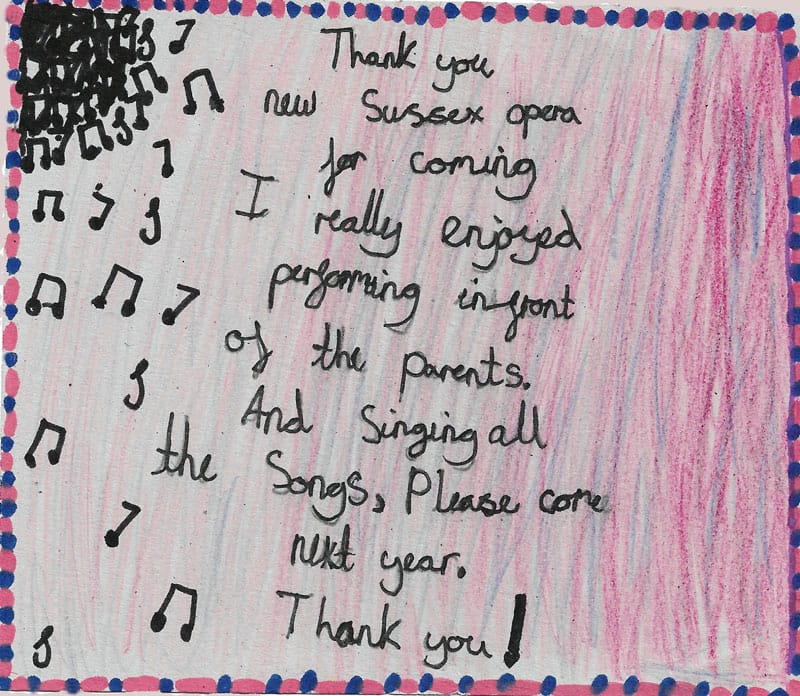 Thank you
new Sussex opera
for coming
I really enjoyed
performing in-front
of the parents.
And singing all
the Songs, Please come
next year.
Thank you!